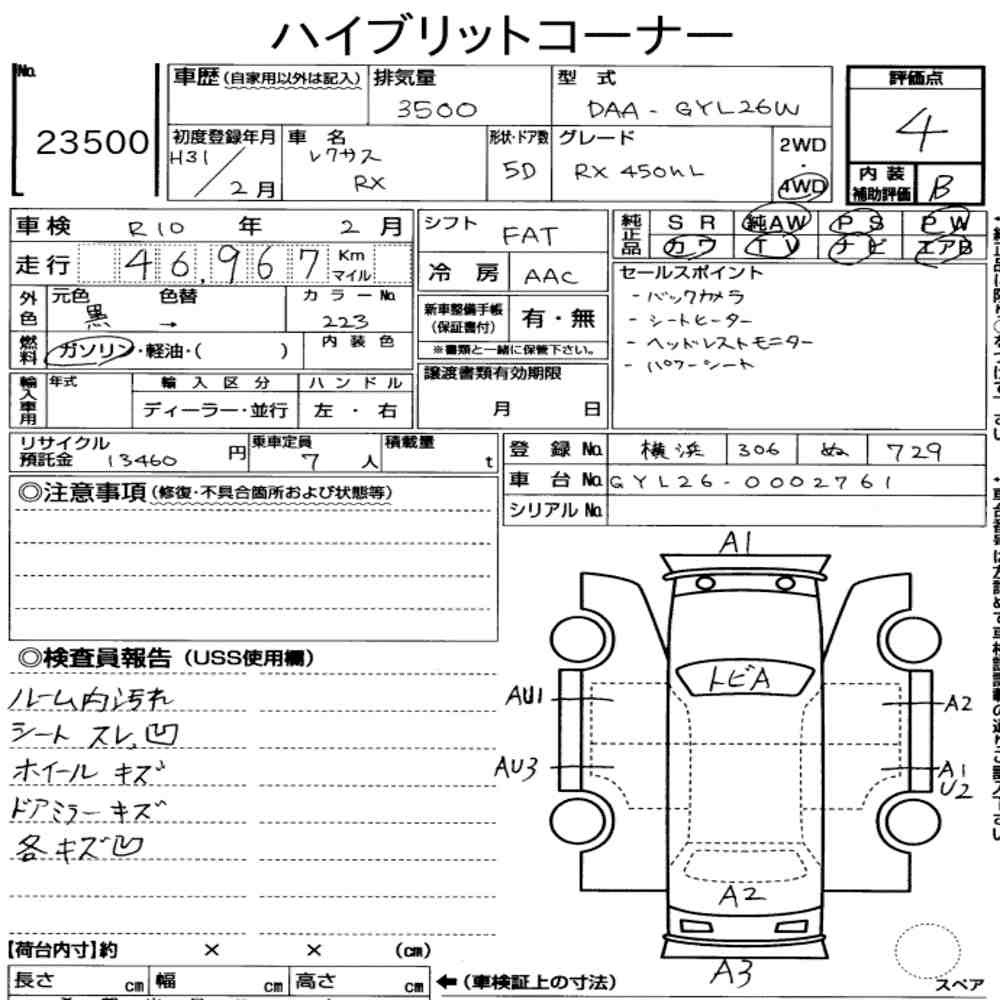 ハイブリットコーナー
No.
23500
車歴(自家用以外は記入)
排気量
3500
型 式
DAA - GYL26W
評価点
4
初度登録年月
H31/2月
車 名
レクサス
RX
形状・ドア数
5D
グレード
RX 450hL
2WD
・
4WD
内装
補助評価
B
車検 R10 年 2 月
走行 46,967 Km
マイル
シフト
FAT
冷房
AAC
純正品
SR 純AW PS PW
カワ TV ナビ エアB
セールスポイント
- バックカメラ
- シートヒーター
- ヘッドレストモニター
- パワーシート
外色
元色
黒
色替
→
カラーNo.
223
新車整備手帳
(保証書付)
有・無
※書類と一緒に保管下さい。
燃料
ガソリン・軽油・( )
内装色
輸入車用
年式
輸入区分
ディーラー・並行
ハンドル
左・右
譲渡書類有効期限
月 日
リサイクル
預託金 13460 円
乗車定員
7 人
積載量
t
登録No. 横浜 306 ぬ 729
車台No. GYL26-0002761
シリアルNo.
◎注意事項(修復・不具合箇所および状態等)
◎検査員報告(USS使用欄)
ルーム内汚れ
シート スレ、凹
ホイール キズ
ドアミラー キズ
各キズ凹
A1
トビA
AU1
A2
AU3
A1
U2
A2
A3
スペア
【荷台内寸】約 × × (cm)
長さ cm 幅 cm 高さ cm
←(車検証上の寸法)